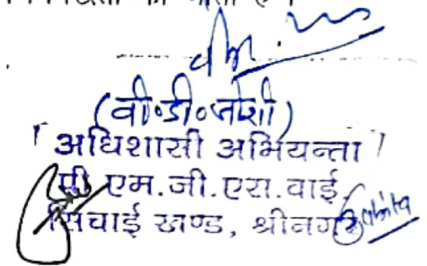 (वी०डी०जोशी)
अधिशासी अभियन्ता
पी एम.जी.एस.वाई.
सिंचाई खण्ड, श्रीनगर